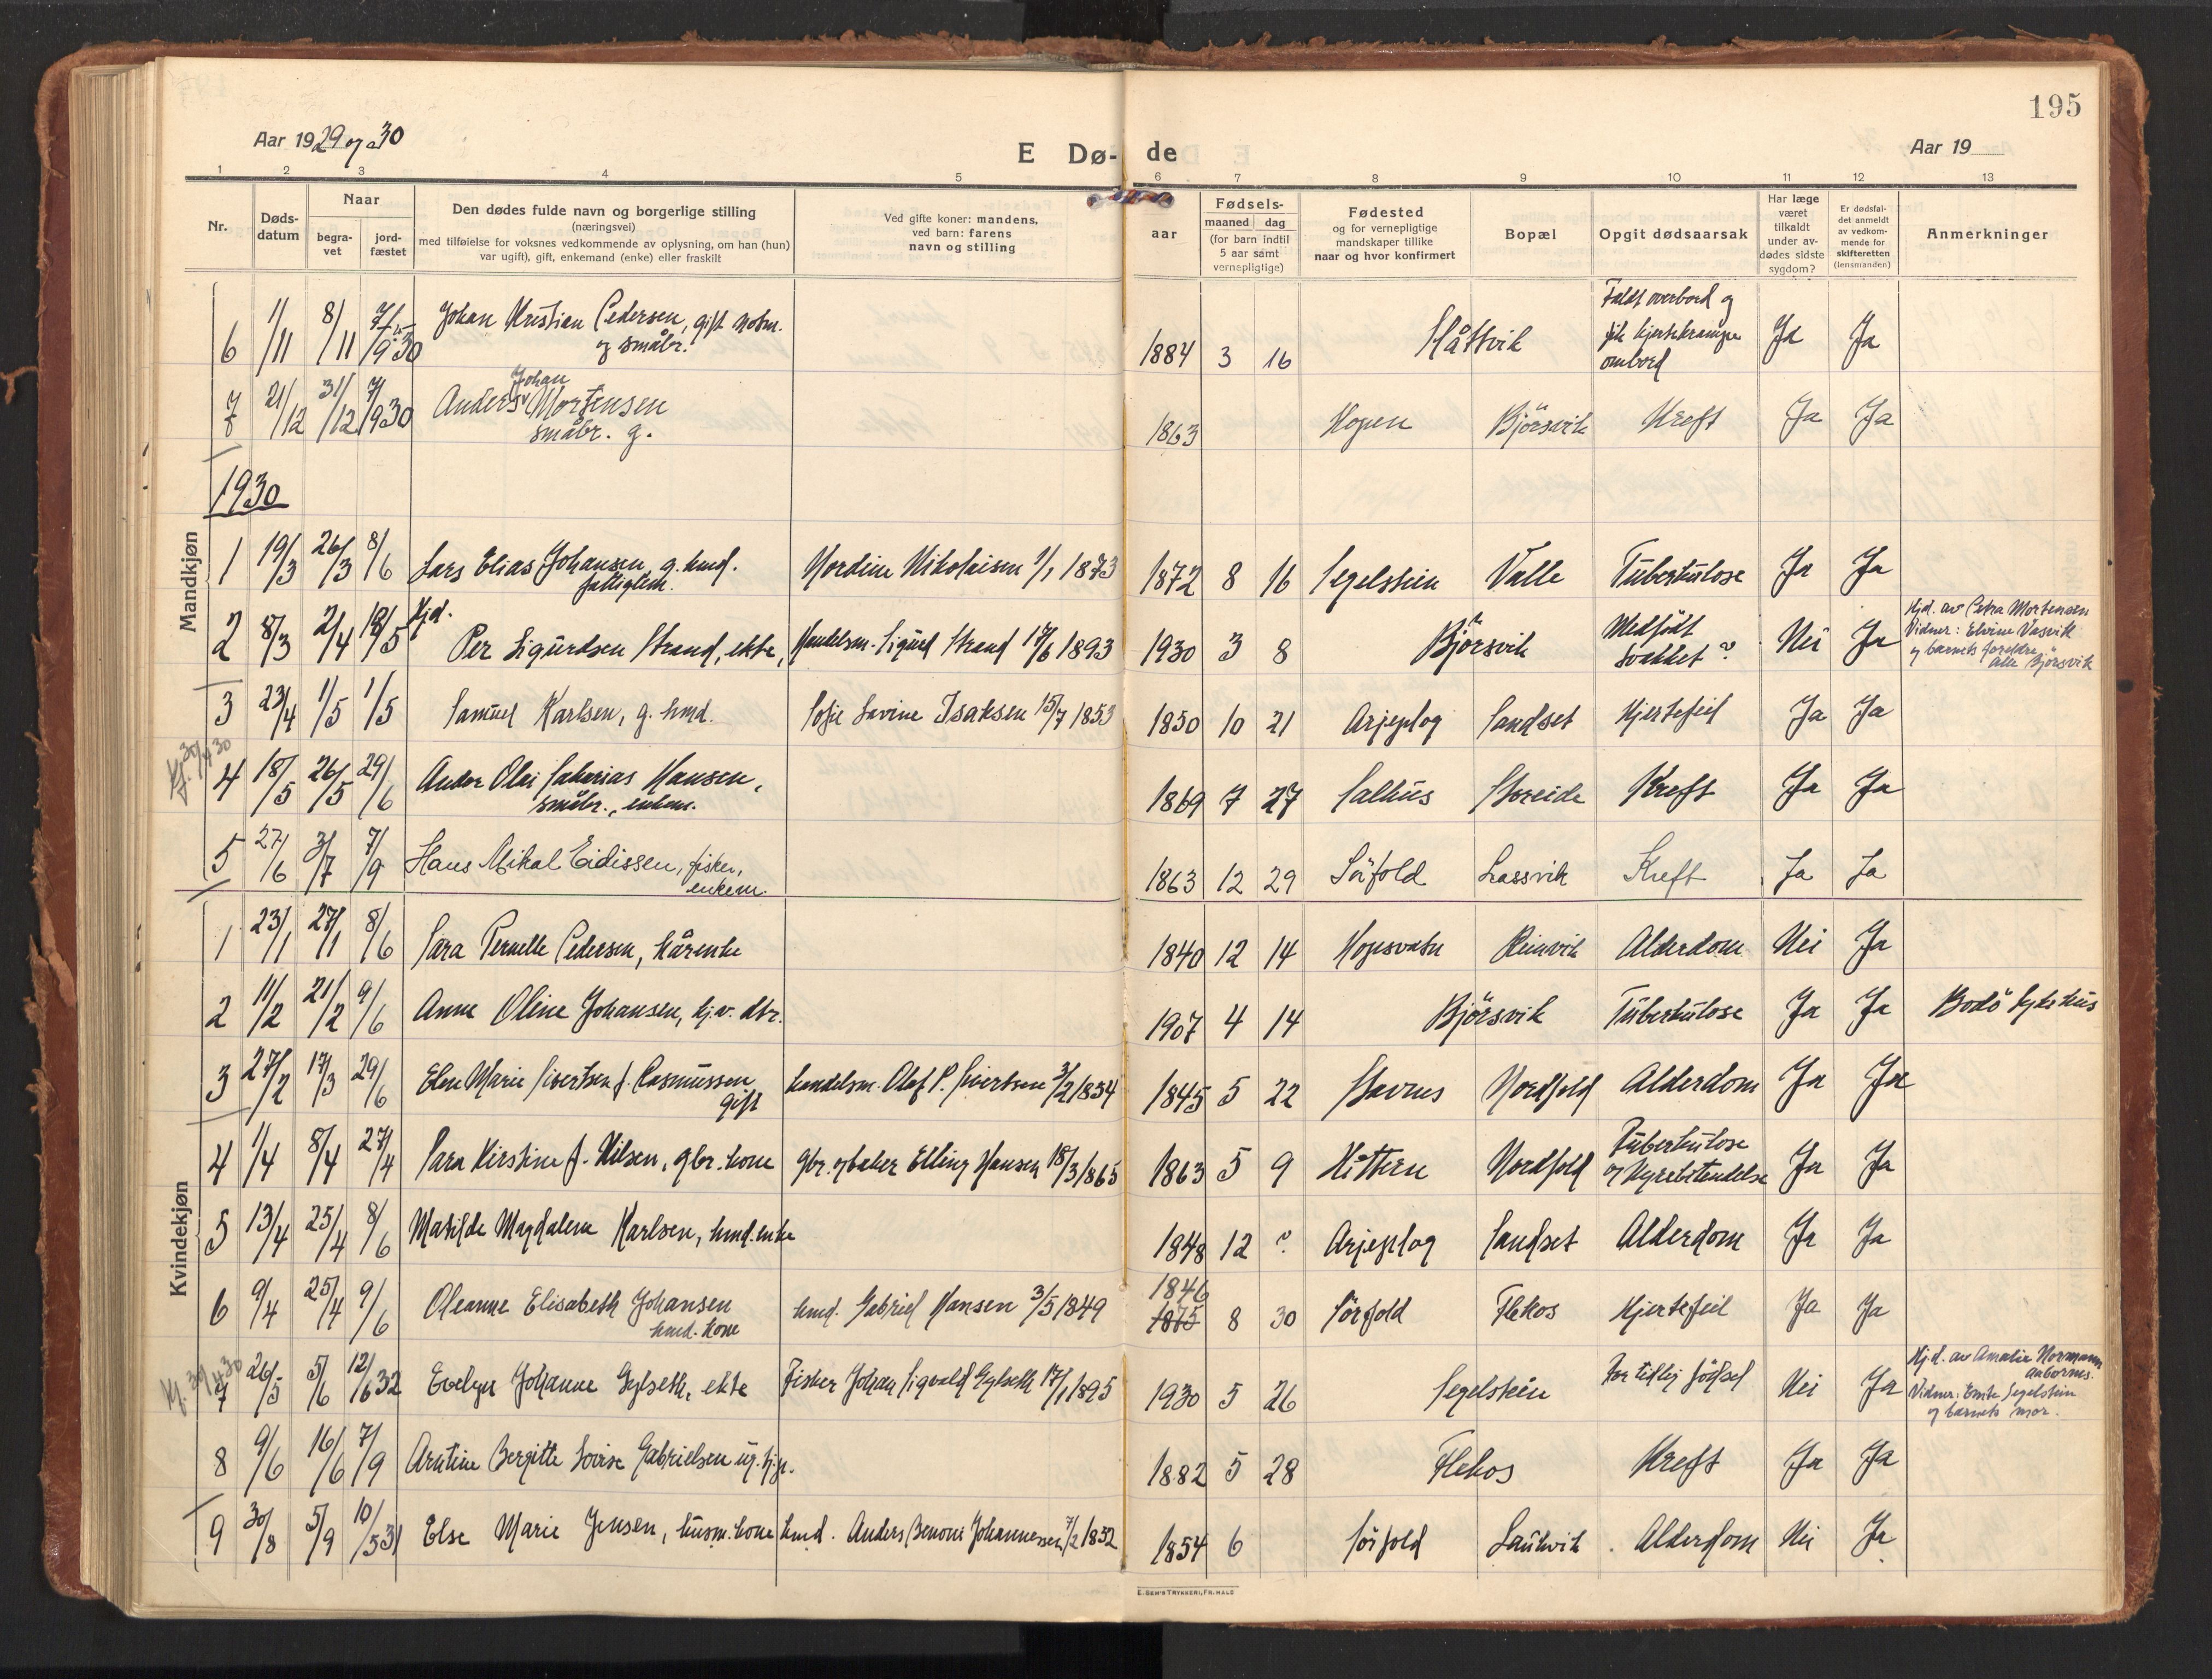 195
Aar 1929 og 30
E Dø-de
Aar 19
1 2 3 4 5 6 7 8 9 10 11 12 13
Nr.
Døds-
datum
Naar
begra-
vet
jord-
fæstet
Den dødes fulde navn og borgerlige stilling
(næringsvei)
med tilføielse for voksnes vedkommende av oplysning, om han (hun)
var ugift), gift, enkemand (enke) eller fraskilt
Ved gifte koner: mandens,
ved barn: farens
navn og stilling
aar
Fødsels-
maaned dag
(for barn indtil
5 aar samt
vernepligtige)
Fødested
og for vernepligtige
mandskaper tillike
naar og hvor konfirmert
Bopæl
Opgit dødsaarsak
Har læge
været
tilkaldt
under av-
dødes sidste
sygdom?
Er dødsfal-
det anmeldt
av vedkom-
mende for
skifteretten
(lensmanden)
Anmerkninger
6 1/11 8/11 7/9 30 Johan Kristian Pedersen, gift
og småbr. 1884 3 16 Håttvik Faldt overbord og
fik hjertekrampe
ombord Ja Ja
7 21/12 31/12 7/9 30 Anders Johan Mortensen
småbr. g. 1863 Hopen Bjørsvik Kreft Ja Ja
1930
Mandkjøn
1 19/3 26/3 8/6 Lars Elias Johansen, g. hmd.
fattiglem. Nordine Nikolaisen 1/1 1873 1872 8 16 Segelstein Valle Tuberkulose Ja Ja
2 8/3 2/4 19/5 Hjd. Per Sigurdsen Strand, ekte, Handelsm. Sigurd Strand 17/6 1893 1930 3 8 Bjørsvik Medfødt
svakhet? Nei Ja Hjd. av Petra Mortensen
Vidner: Elvine Vasvik
og barnets foreldre
alle Bjørsvik
3 23/4 1/5 1/5 Samuel Karlsen, g. hmd. Sofie Lovine Isaksen 15/7 1853 1850 10 21 Arjeplog Sandset Hjertefeil Ja Ja
4 18/5 26/5 29/6 Ander Olai Sakarias Hansen,
småbr., enkem. 1869 7 27 Salhus Storeide Kreft Ja Ja
5 27/6 3/7 7/9 Hans Mikal Eidissen, fisker,
enkem. 1863 12 29 Sörfold Lassvik Kreft Ja Ja
Kvindekjøn
1 23/1 27/1 8/6 Sara Pernelle Pedersen, kårenke 1840 12 14 Hopsvatn Reinvik Alderdom Nei Ja
2 11/2 21/2 9/6 Anne Oline Johansen, hj.v. dtr. 1907 4 14 Bjørsvik Tuberkulose Ja Ja Bodö sykehus
3 27/2 17/3 29/6 Elen Marie Sivertsen f. Rasmussen
gift handelsm. Olaf P. Sivertsen 3/2 1854 1845 5 22 Nordfold Alderdom Ja Ja
4 1/4 8/4 27/4 Sara Kirstine f. Nilsen, gbr. kone gbr. og baker Elling Hansen 18/3 1865 1863 5 9 Hitteren Nordfold Tuberkulose
og Nyrebetendelse Ja Ja
5 13/4 25/4 8/6 Matilde Magdalena Karlsen, hmd. enke 1848 12 ? Arjeplog Sandset Alderdom Ja Ja
6 9/4 25/4 9/6 Oleanne Elisabeth Johansen
hmd. kone hmd. Gabriel Hansen 3/5 1849 1846
1875 8 30 Sørfold Flekos Hjertefeil Ja Ja
7 26/5 5/6 12/6 32 Evelyn Johanne Gylseth, ekte Fisker Johan Sigvald Gylseth 17/1 1895 1930 5 26 Segelstein For tidlig födsel Nei Ja Hj.d. av Amalie Normann
Vidner: Segelstein
og barnets mor.
8 9/6 16/6 7/9 Arntine Bergitte Lovise Gabrielsen ug. hj.p. 1882 5 28 Flekos Kreft Ja Ja
9 30/8 5/9 10/5 31 Else Marie Jensen, husm. kone hmd. Anders Benoni Johannessen 7/2 1852 1854 6 Sörfold Laukvik Alderdom Nei Ja
E. SEM'S TRYKKERI, FR.HALD